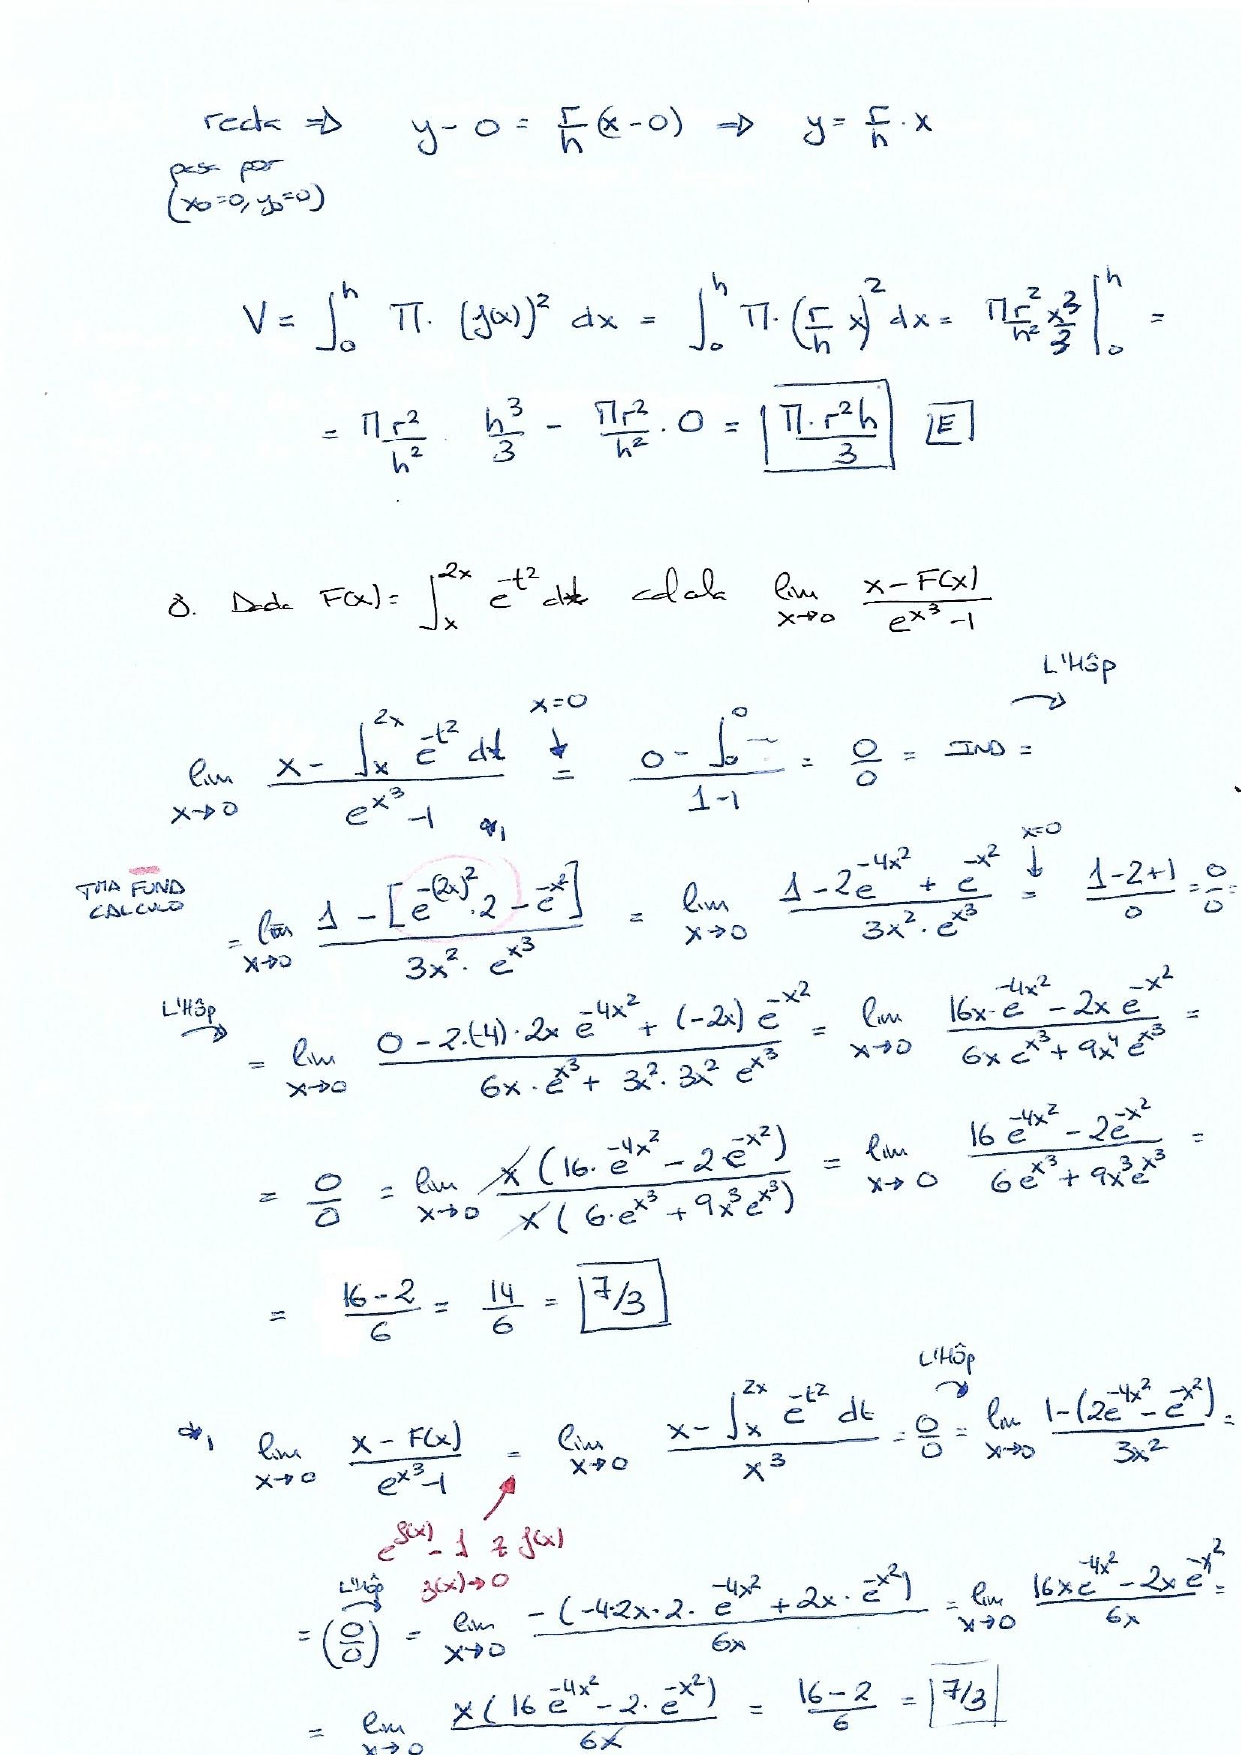 recta ⇒ y - 0 = r/h (x - 0) ⇒ y = r/h · x
pasa por
(x0=0, y0=0)
V = ∫_0^h π · (f(x))^2 dx = ∫_0^h π · (r/h x)^2 dx = πr^2/h^2 x^3/3 |_0^h =
= πr^2/h^2 h^3/3 - πr^2/h^2 · 0 = π·r^2h/3 E
8. Dada F(x) = ∫_x^{2x} e^{-t^2} dt calcula lim x→0 (x - F(x))/(e^{x^3} - 1)
L'Hôp
lim x→0 (x - ∫_x^{2x} e^{-t^2} dt)/(e^{x^3} - 1) = x=0 ↓ (0 - ∫_0^0 ~)/(1-1) = 0/0 = IND =
*1
TMA FUND CALCULO
= lim x→0 (1 - [e^{-(2x)^2} · 2 - e^{-x^2}])/(3x^2 · e^{x^3}) = lim x→0 (1 - 2e^{-4x^2} + e^{-x^2})/(3x^2 · e^{x^3}) = x=0 ↓ (1-2+1)/0 = 0/0 =
L'Hôp
= lim x→0 (0 - 2·(-4)·2x e^{-4x^2} + (-2x) e^{-x^2})/(6x · e^{x^3} + 3x^2 · 3x^2 e^{x^3}) = lim x→0 (16x · e^{-4x^2} - 2x e^{-x^2})/(6x e^{x^3} + 9x^4 e^{x^3}) =
= 0/0 = lim x→0 x(16 · e^{-4x^2} - 2 e^{-x^2})/x(6·e^{x^3} + 9x^3 e^{x^3}) = lim x→0 (16 e^{-4x^2} - 2e^{-x^2})/(6e^{x^3} + 9x^3 e^{x^3}) =
= (16-2)/6 = 14/6 = 7/3
L'Hôp
*1 lim x→0 (x - F(x))/(e^{x^3} - 1) = lim x→0 (x - ∫_x^{2x} e^{-t^2} dt)/x^3 = 0/0 = lim x→0 (1 - (2e^{-4x^2} - e^{-x^2}))/3x^2 =
e^{f(x)} - 1 ≈ f(x)
f(x)→0
L'Hôp
= (0/0) = lim x→0 -(-4·2x·2· e^{-4x^2} + 2x · e^{-x^2})/6x = lim x→0 (16xe^{-4x^2} - 2x e^{-x^2})/6x =
= lim x→0 x(16 e^{-4x^2} - 2· e^{-x^2})/6x = (16-2)/6 = 7/3